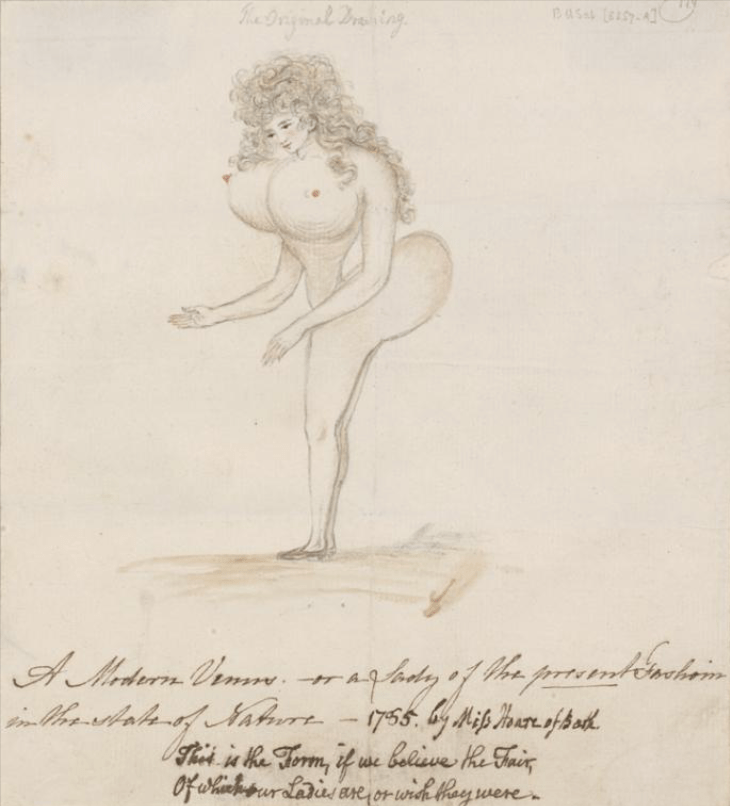 The Original Drawing.
A Modern Venus. — or a Lady of the present Fashion
in the state of Nature — 1785. by Miss Hoare of Bath
This is the Form, if we believe the Fair,
Of which our Ladies are, or wish they were.